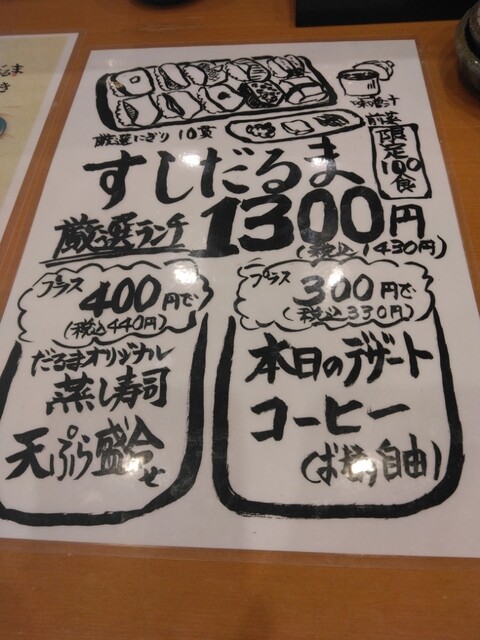 味噌汁
前菜
厳選にぎり10貫
限定100食
すしだるま
厳選ランチ
1300円
(税込1430円)
プラス
400円で
(税込440円)
だるまオリジナル
蒸し寿司
天ぷら盛合せ
プラス
300円で
(税込330円)
本日のデザート
コーヒー
(お様り自由)
だるま
き